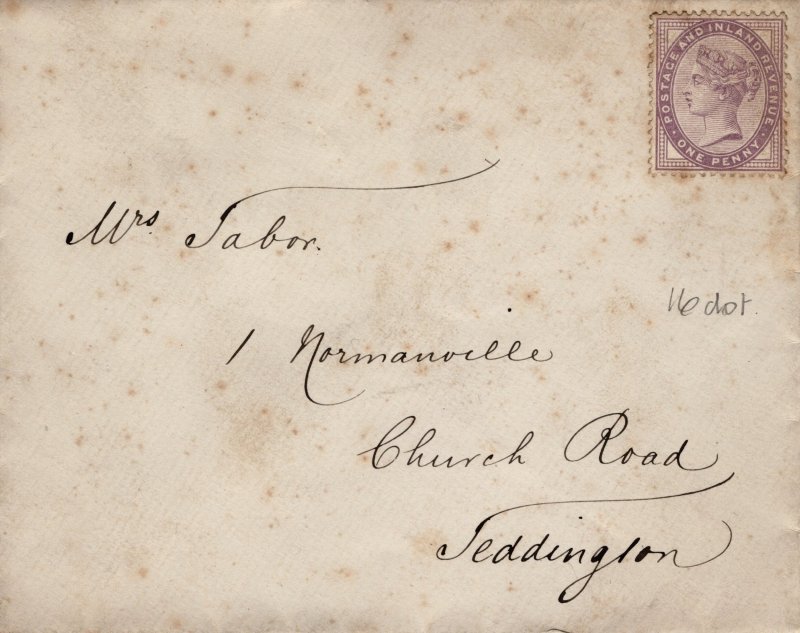 POSTAGE AND INLAND REVENUE
ONE PENNY
Mrs Tabor.
16 dot.
1 Normanville
Church Road
Teddington